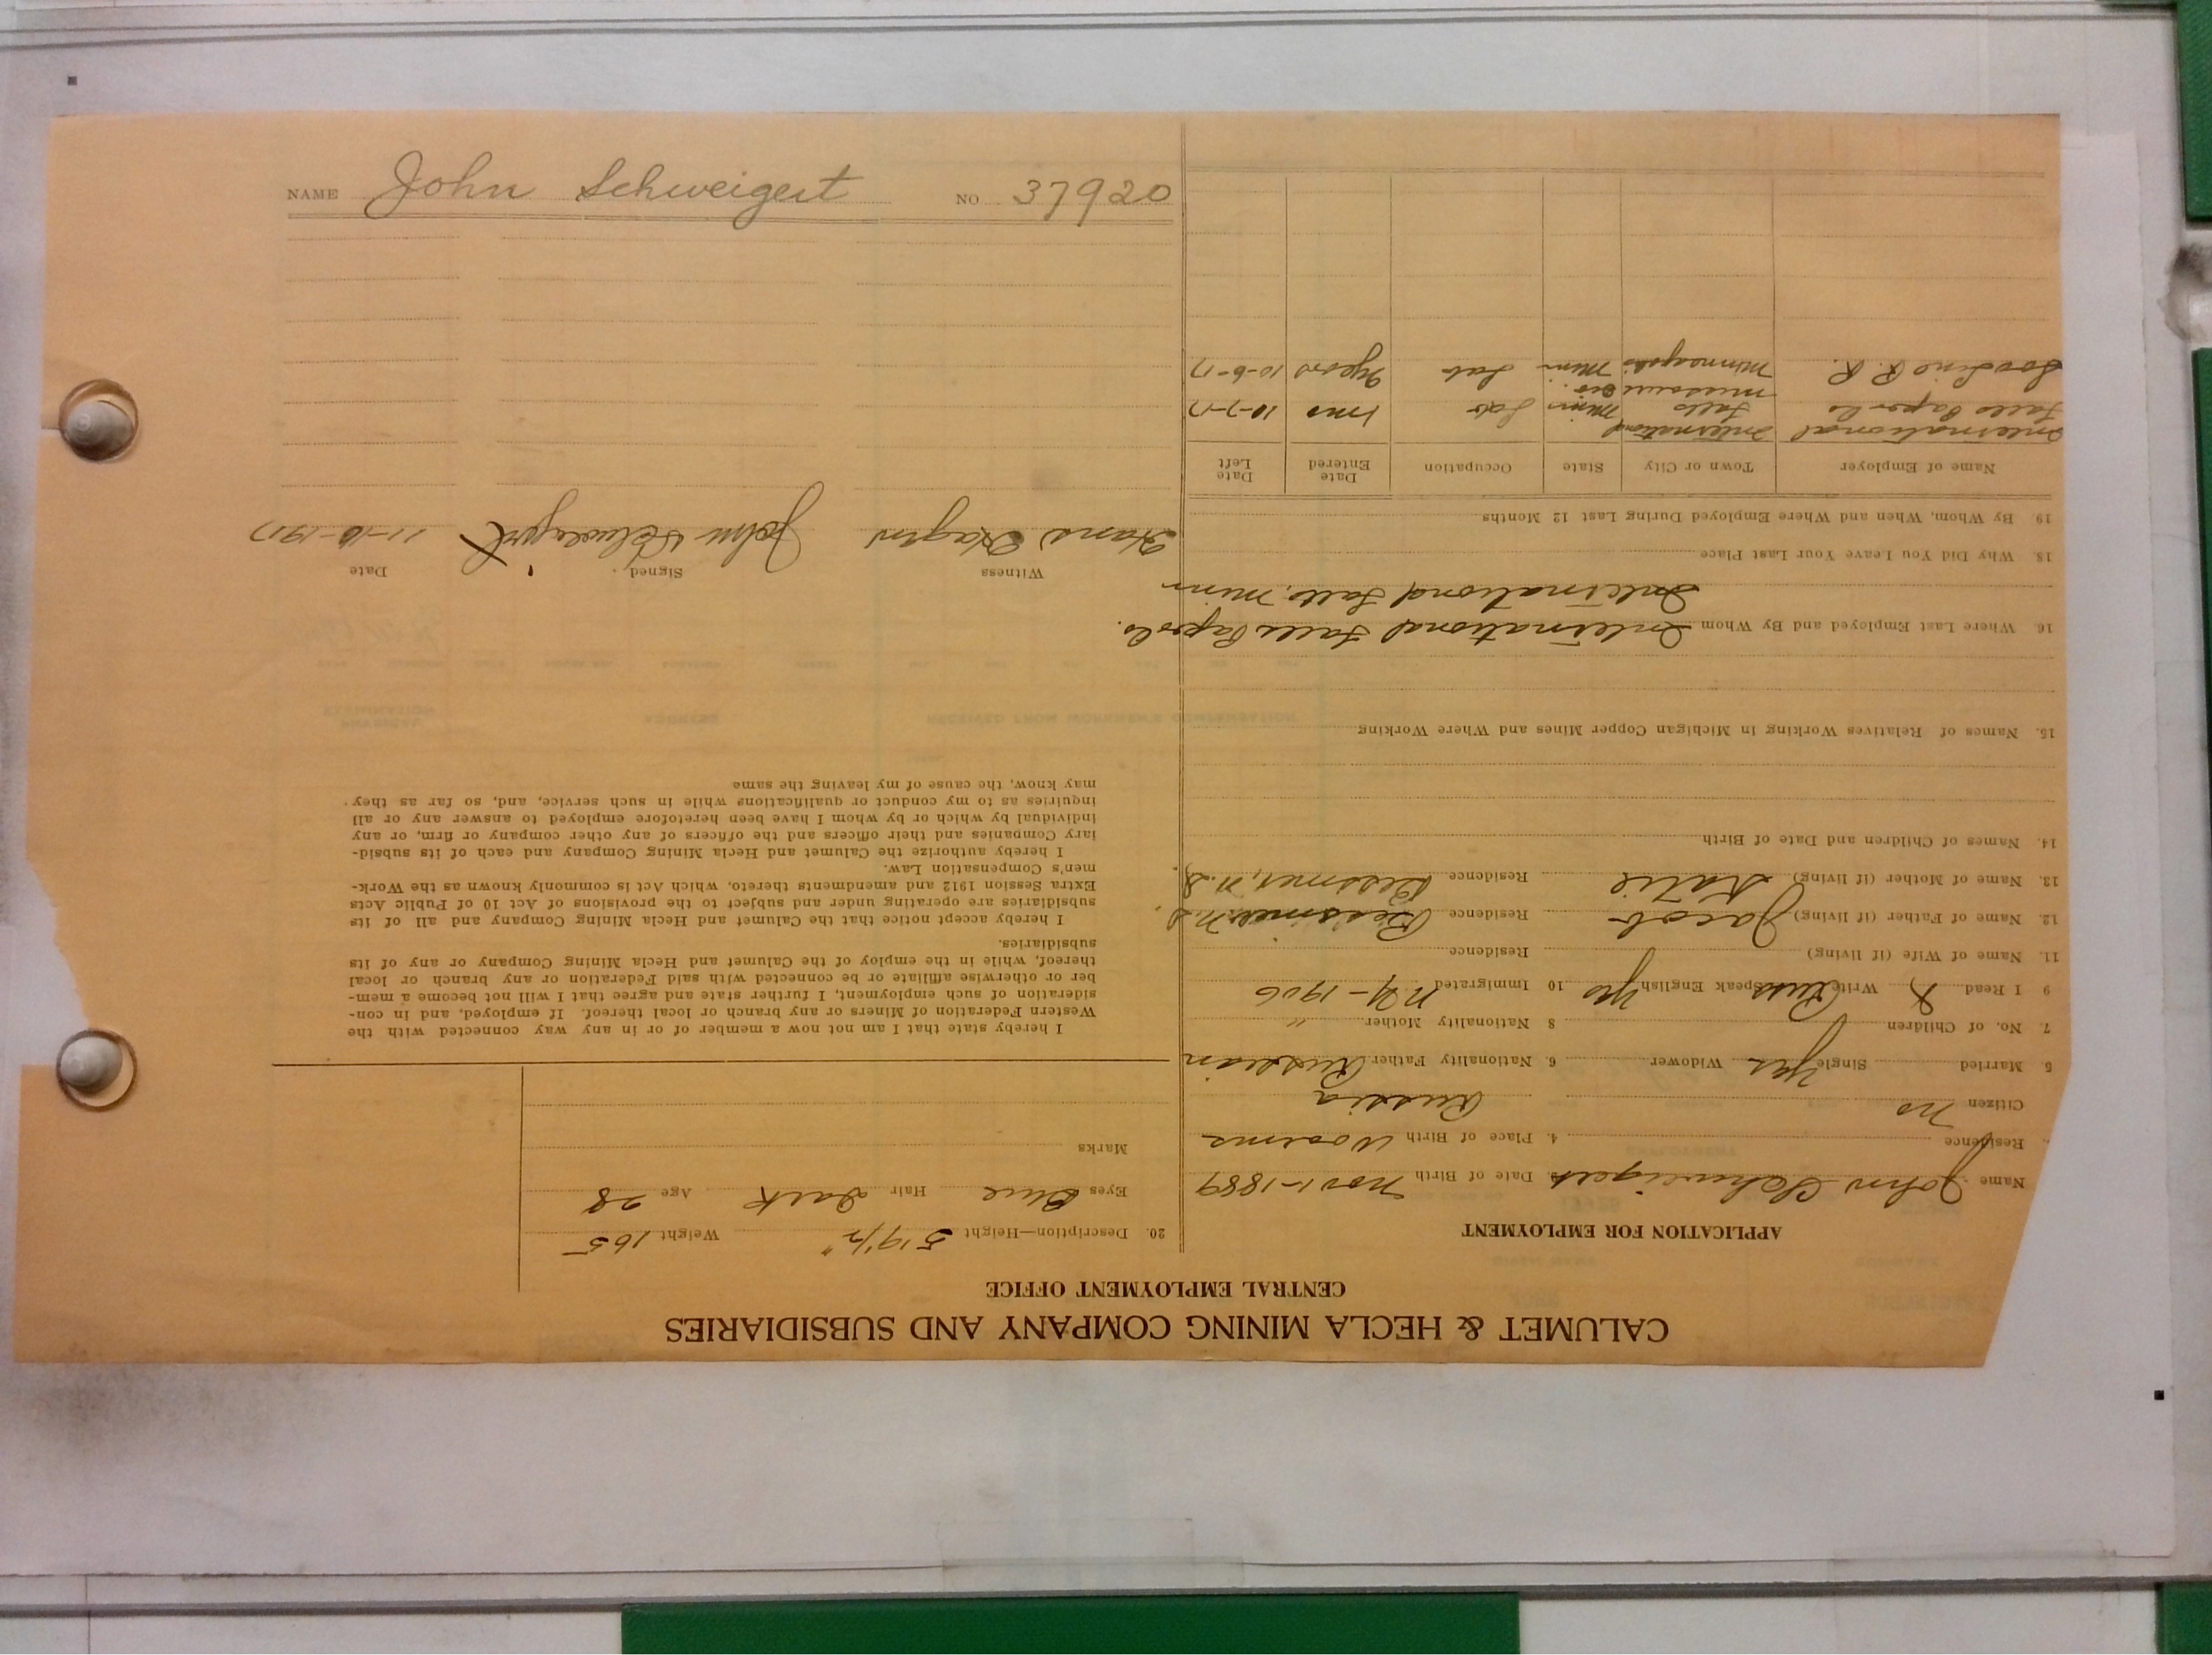 CALUMET & HECLA MINING COMPANY AND SUBSIDIARIES
CENTRAL EMPLOYMENT OFFICE
APPLICATION FOR EMPLOYMENT
Name John Schweigert Date of Birth Nov 1-1889
Residence 4. Place of Birth Woorms
Citizen no Russia
5 Married Single Yes Widower 6. Nationality Father Russian
7. No. of Children 8 Nationality Mother "
9 I Read X Write Russ Speak English Yes 10 Immigrated N.Y-1906
11. Name of Wife (if living) Residence
12. Name of Father (if living) Jacob Residence Bessmer N.D.
13. Name of Mother (if living) Katie Residence Bessmer, N.D.
14. Names of Children and Date of Birth
15. Names of Relatives Working in Michigan Copper Mines and Where Working
16. Where Last Employed and By Whom International Falls Paper Co.
International Falls, Minn
18. Why Did You Leave Your Last Place
19. By Whom, When and Where Employed During Last 12 Months
Name of Employer Town or City State Occupation Date Entered Date Left
International Falls Paper Co International Falls Minn Lab 1 mo 10-7-17
Soo Line R.R. Minneapolis Minn Lab 9 years 10-6-17
20. Description—Height 5'9½" Weight 165
Eyes Blue Hair Dark Age 28
Marks
I hereby state that I am not now a member of or in any way connected with the
Western Federation of Miners or any branch or local thereof. If employed, and in con-
sideration of such employment, I further state and agree that I will not become a mem-
ber or otherwise affiliate or be connected with said Federation or any branch or local
thereof, while in the employ of the Calumet and Hecla Mining Company or any of its
subsidiaries.
I hereby accept notice that the Calumet and Hecla Mining Company and all of its
subsidiaries are operating under and subject to the provisions of Act 10 of Public Acts
Extra Session 1912 and amendments thereto, which Act is commonly known as the Work-
men's Compensation Law.
I hereby authorize the Calumet and Hecla Mining Company and each of its subsid-
iary Companies and their officers and the officers of any other company or firm, or any
individual by which or by whom I have been heretofore employed to answer any or all
inquiries as to my conduct or qualifications while in such service, and, so far as they
may know, the cause of my leaving the same
Witness Signed Date
Hans John Schweigert 11-10-1917
NAME John Schweigert NO 37920